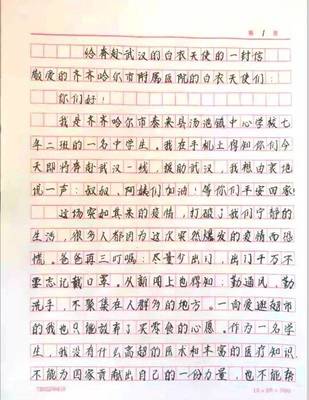 第 1 页
给奔赴武汉的白衣天使的一封信
敬爱的齐齐哈尔市附属医院的白衣天使们:
你们好!
我是齐齐哈尔市泰来县汤池镇中心学校七
年二班的一名中学生。我在手机上得知你们今
天即将奔赴武汉一线,援助武汉,我想由衷地
说一声:叔叔、阿姨们加油!等你们平安回家!
这场突如其来的疫情,打破了我们宁静的
生活,很多人都因为这次突然爆发的疫情而恐
慌。爸爸再三叮嘱:尽量少出门,出门千万不
要忘记戴口罩。从新闻上也得知:勤通风,勤
洗手,不聚集在人群多的地方。一向爱逛超市
的我也只能放弃了买零食的心愿。作为一名学
生,我没有什么高超的医术和丰富的医疗知识
不能为国家贡献出自己的一份力量,也不能帮